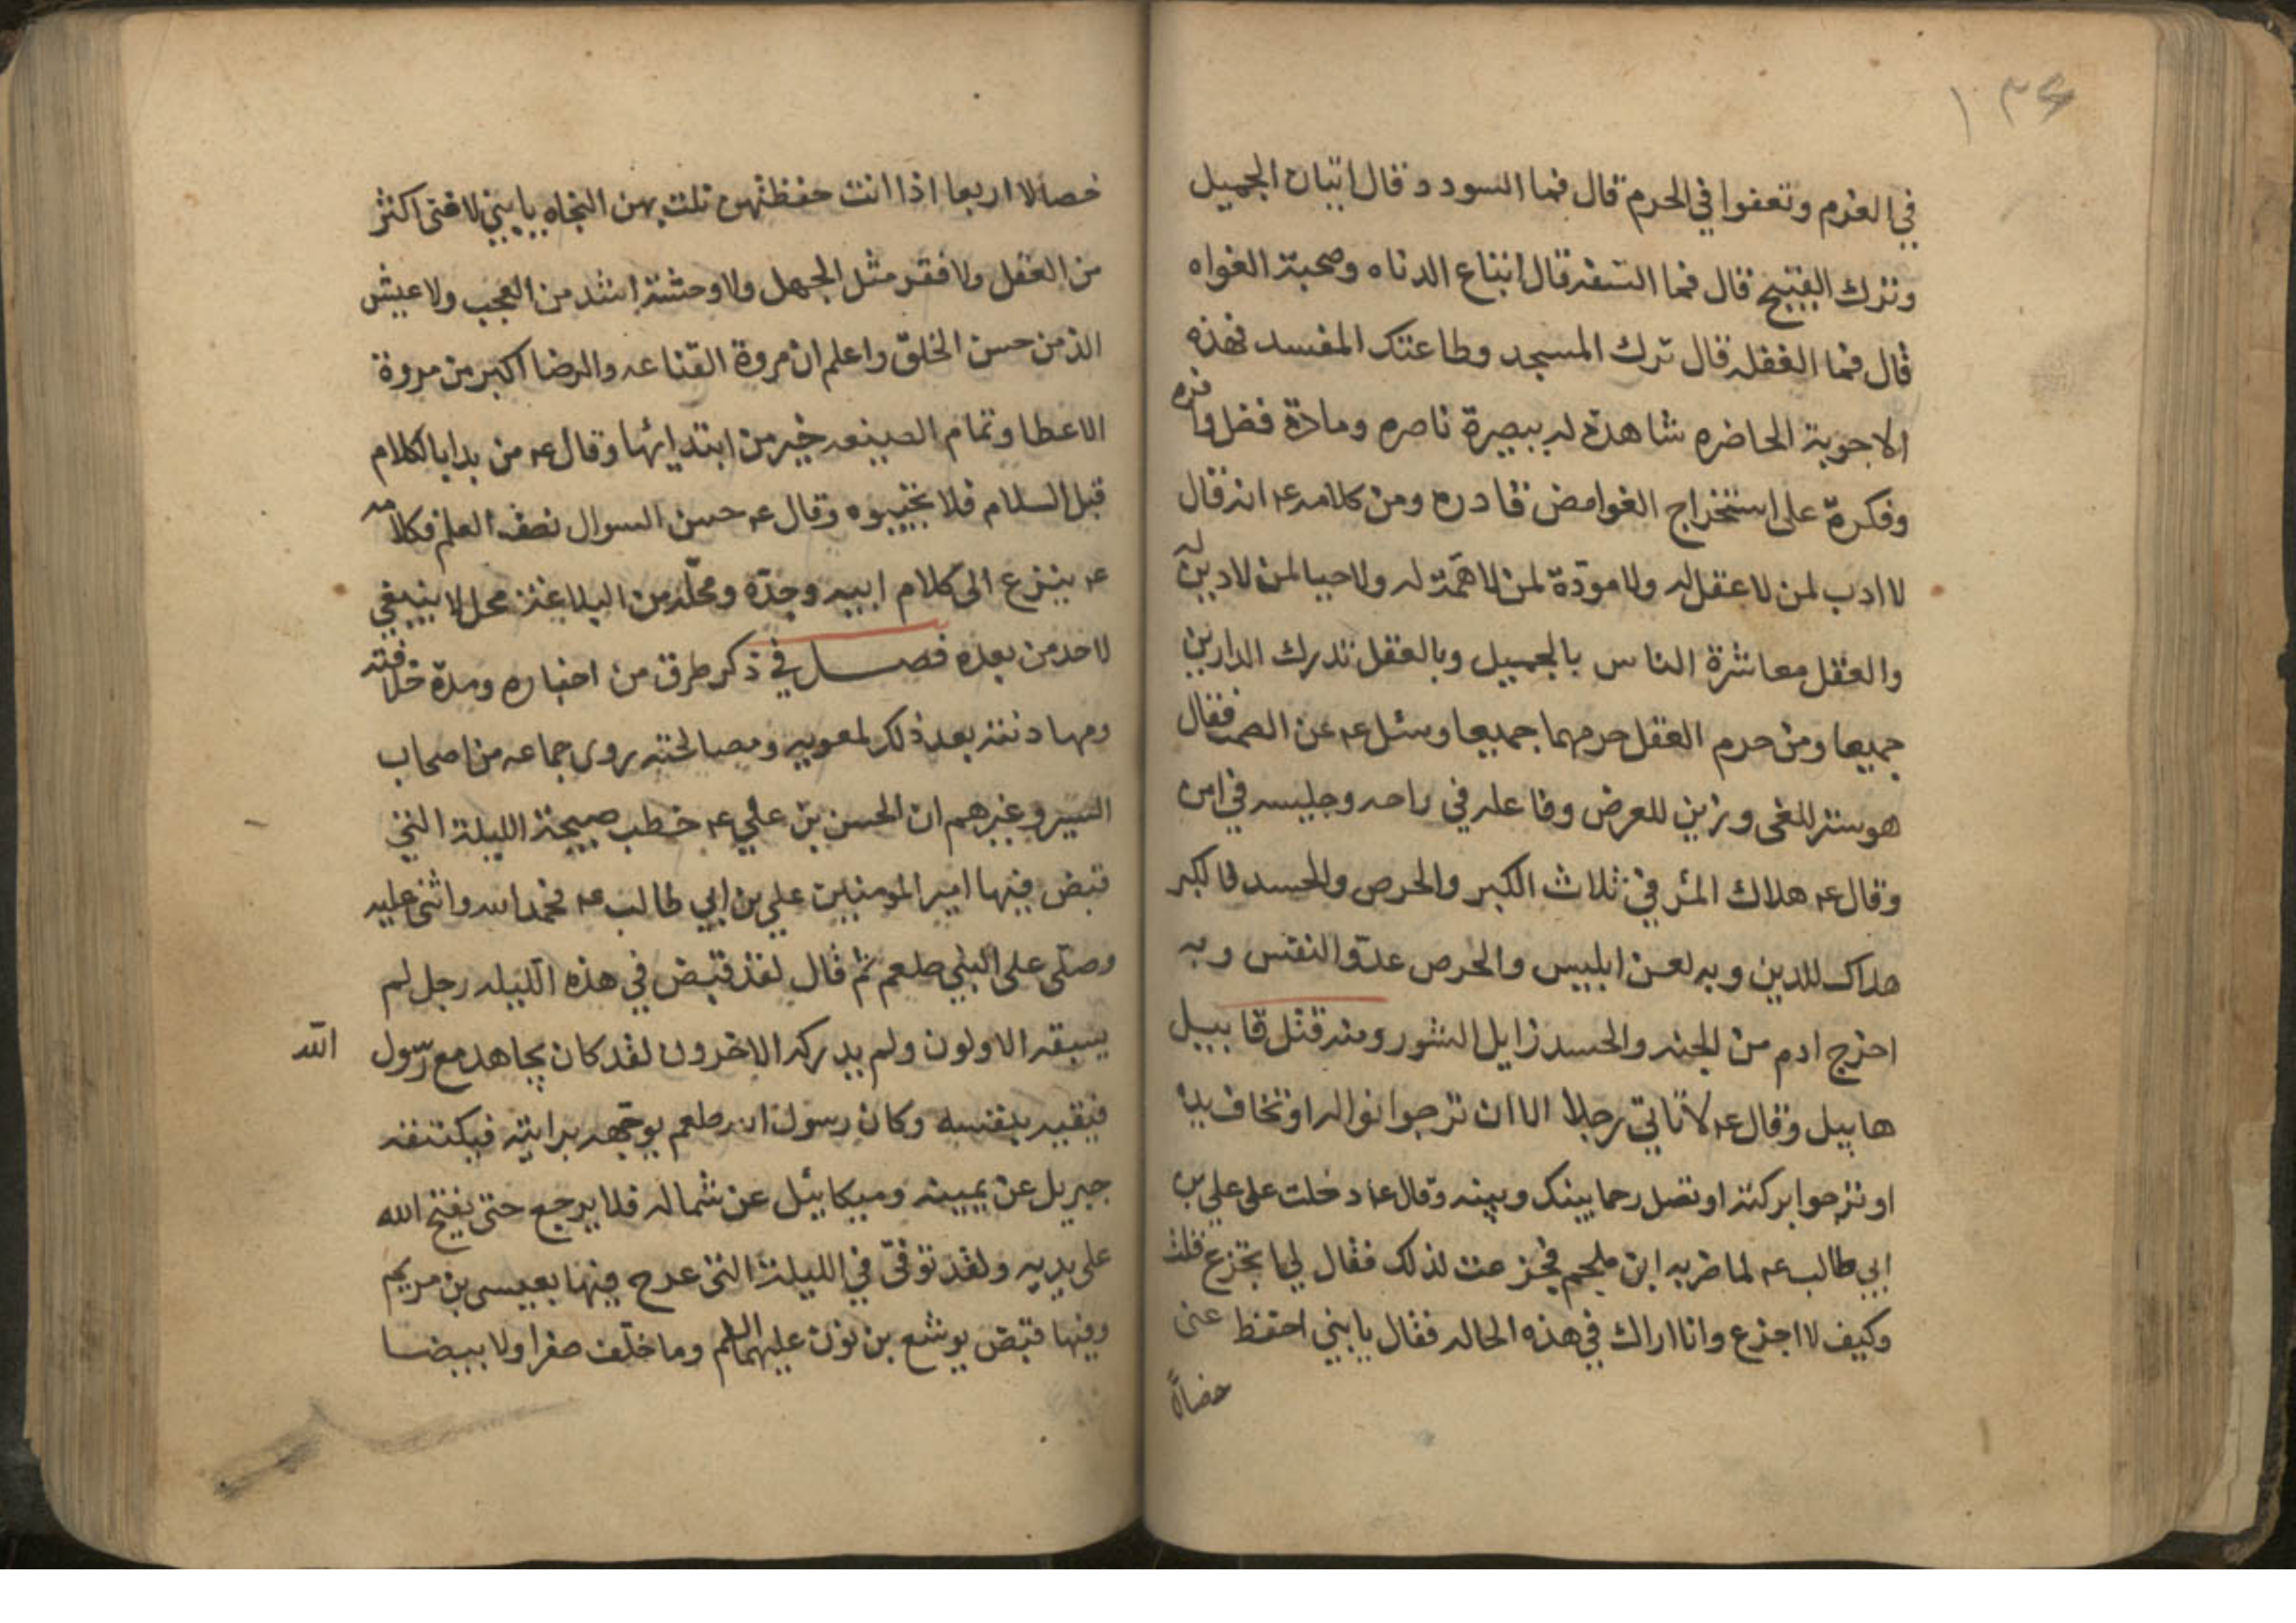 ١٣٤
في الغرم وتعفوا في الحرم قال فما السودد قال اتيان الجميل
وترك القبيح قال فما السفه قال اتباع الدناه وصحبة الغواه
قال فما الغفله قال ترك المسجد وطاعتك المفسد فهذه
الاجوبة الحاضره شاهدة له ببصيرة ناصره ومادة فضل وافره
وفكرة على استخراج الغوامض قادره ومن كلامه ع انه قال
لا ادب لمن لا عقل له ولا مودة لمن لا همة له ولا حيا لمن لا دين له
والعقل معاشرة الناس بالجميل وبالعقل تدرك الدارين
جميعا ومن حرم العقل حرمهما جميعا وسئل ع عن الصمت فقال
هو ستر للغى وزين للعرض وفاعله في راحه وجليسه في امن
وقال ع هلاك المرء في ثلاث الكبر والحرص والحسد فالكبر
هلاك للدين وبه لعن ابليس والحرص عدو النفس وبه
اخرج ادم من الجنه والحسد زايل الشور ومنه قتل قابيل
هابيل وقال ع لا تاتي رجلا الا ان ترجوا نواله او تخاف يده
او ترجوا بركته او تصل رحما بينك وبينه وقال ع دخلت على علي بن
ابي طالب ع لما ضربه ابن ملجم فجزعت لذلك فقال لي اتجزع قلت
وكيف لا اجزع وانا اراك في هذه الحاله فقال يا بني احفظ عنى
خصالا
خصالا اربعا اذا انت حفظتهن نلت بهن النجاه يا بني لا غنى اكثر
من العقل ولا فقر مثل الجهل ولا وحشة اشد من العجب ولا عيش
الذ من حسن الخلق واعلم ان مروة القناعه والرضا اكبر من مروة
الاعطا وتمام الصنيعه خير من ابتدايها وقال ع من بدا بالكلام
قبل السلام فلا تجيبوه وقال ع حسن السوال نصف العلم فكلامه
ع ينزع الى كلام ابيه وجده ومحله من البلاغة محل لا ينبغي
لاحد من بعده فصل في ذكر طرق من اخباره ومدة خلافته
ومهادنته بعد ذلك لمعويه ومصالحته روى جماعه من اصحاب
السير وغيرهم ان الحسن بن علي ع خطب صبيحة الليلة التي
قبض فيها امير المومنين علي بن ابي طالب ع فحمد الله واثنى عليه
وصلى على النبي صلعم ثم قال لقد قبض في هذه الليله رجل لم
يسبقه الاولون ولم يدركه الاخرون لقد كان يجاهد مع رسول الله
فيقيه بنفسه وكان رسول الله صلعم يوجهه برايته فيكتنفه
جبريل عن يمينه وميكاييل عن شماله فلا يرجع حتى يفتح الله
على يديه ولقد توفى في الليلة التي عرج فيها بعيسى بن مريم
وفيها قبض يوشع بن نون عليهما السلم وما خلف صفرا ولا بيضا